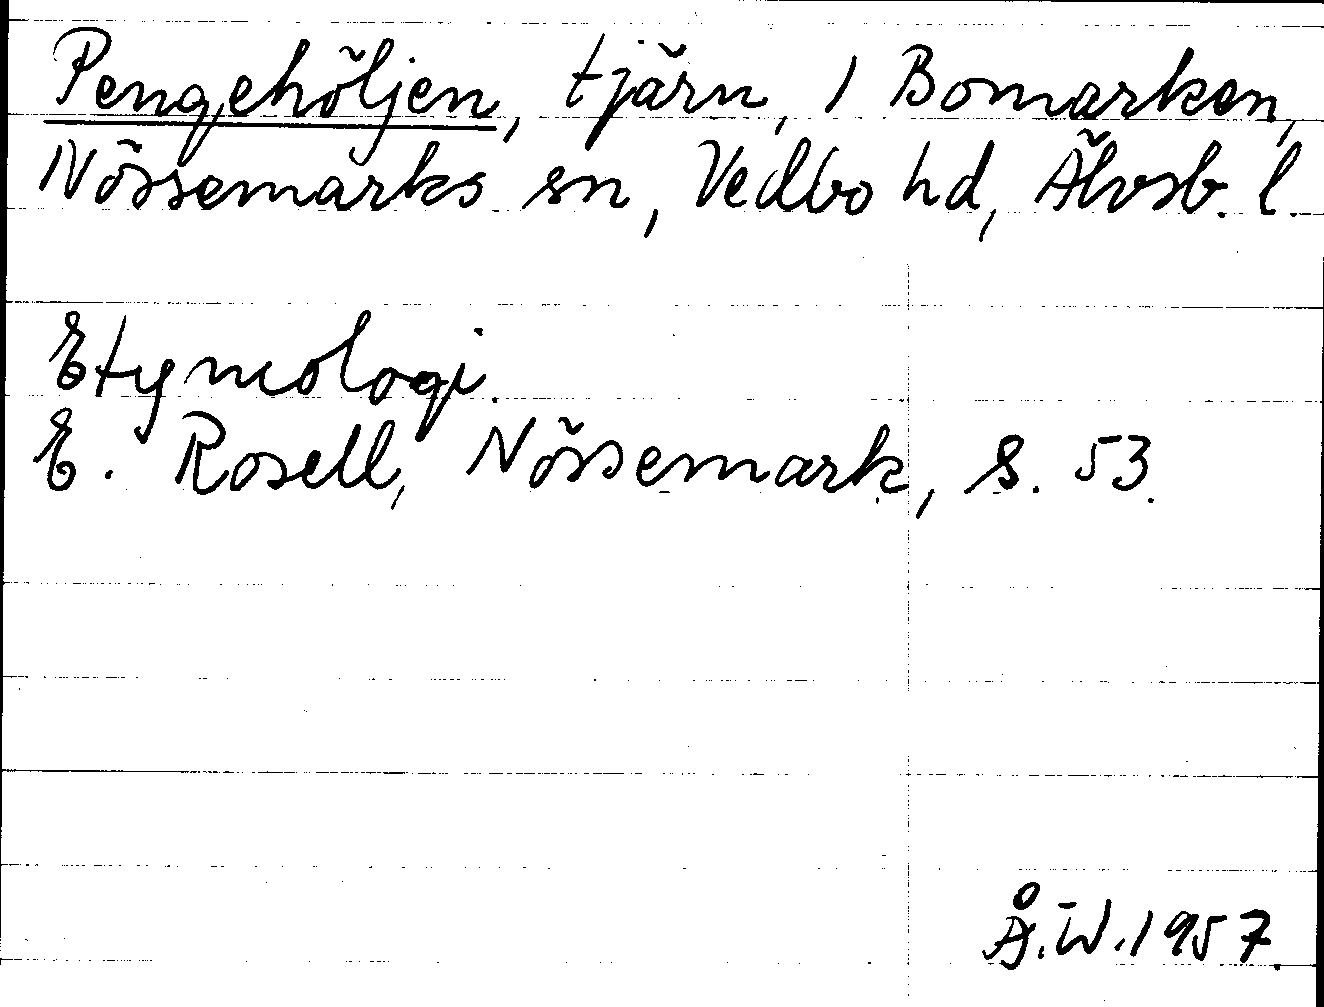 Pengehöljen, tjärn, 1 Bomarken,
Nössemarks sn, Vedbo hd, Älvsb. l.
Etymologi.
E. Rosell, Nössemark, s. 53.
Å.W. 1957.